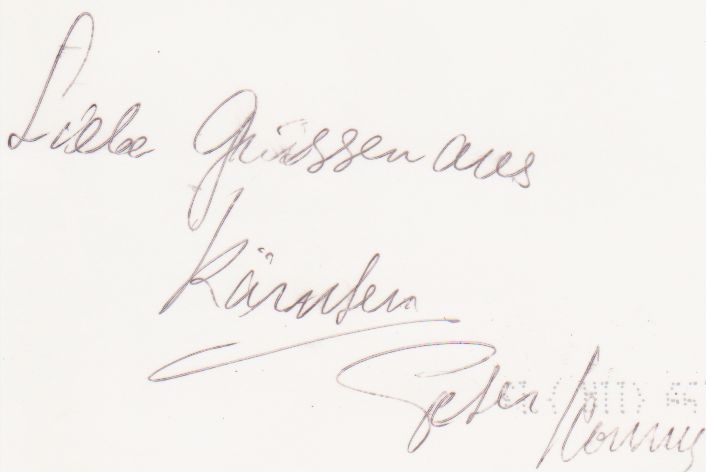 Liebe Grüssen aus
Kärnten
Peter